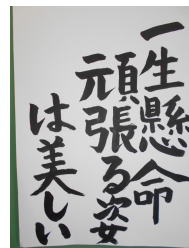 一生懸命
頑張る姿
は美しい